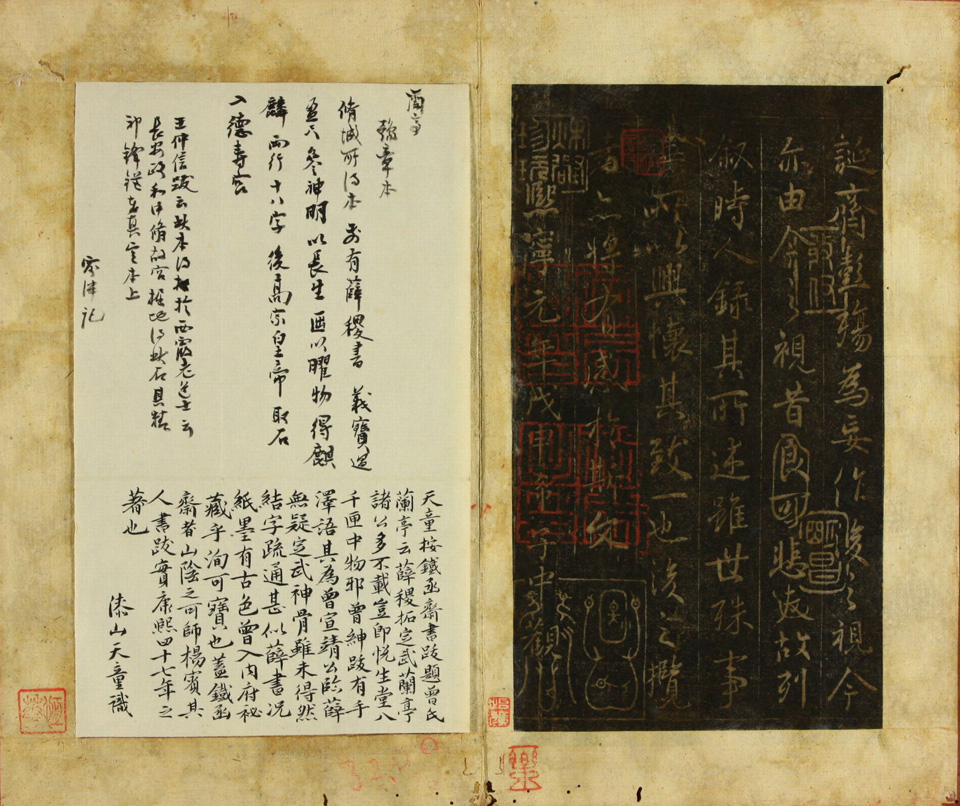 誕齊彭殤為妄作後之視今
亦由今之視昔良可悲夫故列
敘時人錄其所述雖世殊事
異所以興懷其致一也後之攬
者亦將有感於斯文
熙寧元年戊申
蘭亭
脩城所得本 前有薛稷書 義寶遇
參神明以長生 以曜物 得麒
麟 兩行十八字 後高宗皇帝取石
入德壽宮
王仲信跋云此本得於西霞老道士云
長安政和中脩故宮掘地得此石具
天童按鐵函齋書跋題曾氏
蘭亭云薛稷拓定武蘭亭
諸公多不載豈即悅生堂八
千匣中物邪曾紳跋有手
澤語其為曾宣靖公臨薛
無疑定武神骨雖未得然
結字疏通甚似薛書況
紙墨有古色曾入內府祕
藏乎洵可寶也蓋鐵函
齋者山陰之可師楊賓其
人書跋實康熙四十七年之
著也
漆山天童識